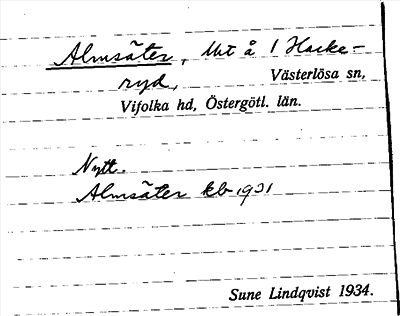 Almsäter, Utt å 1 Hacke-
ryd, Västerlösa sn,
Vifolka hd, Östergötl. län.
Nytt.
Almsäter kb 1931
Sune Lindqvist 1934.